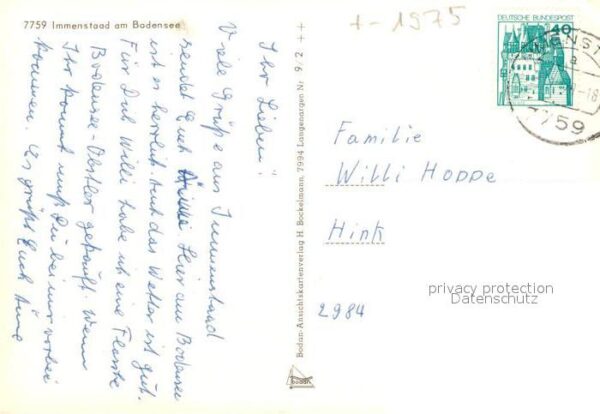 7759 Immenstaad am Bodensee
Ihr Lieben!
Viele Grüße aus Immenstaad
sendet Euch Hier am Bodensee
ist es herrlich. Auch das Wetter ist gut.
Für Dich Willi habe ich eine Flasche
Bodensee-Obstler gekauft. Wenn
Ihr kommt mußt Du bei mir vorbei
kommen. Es grüßt Euch Änne
Bodan-Ansichtskartenverlag H. Bockelmann, 7994 Langenargen Nr. 9/2 + +
BODAN
+-1975
DEUTSCHE BUNDESPOST
40
7759
Familie
Willi HOPPE
Hink
2984
privacy protection
Datenschutz